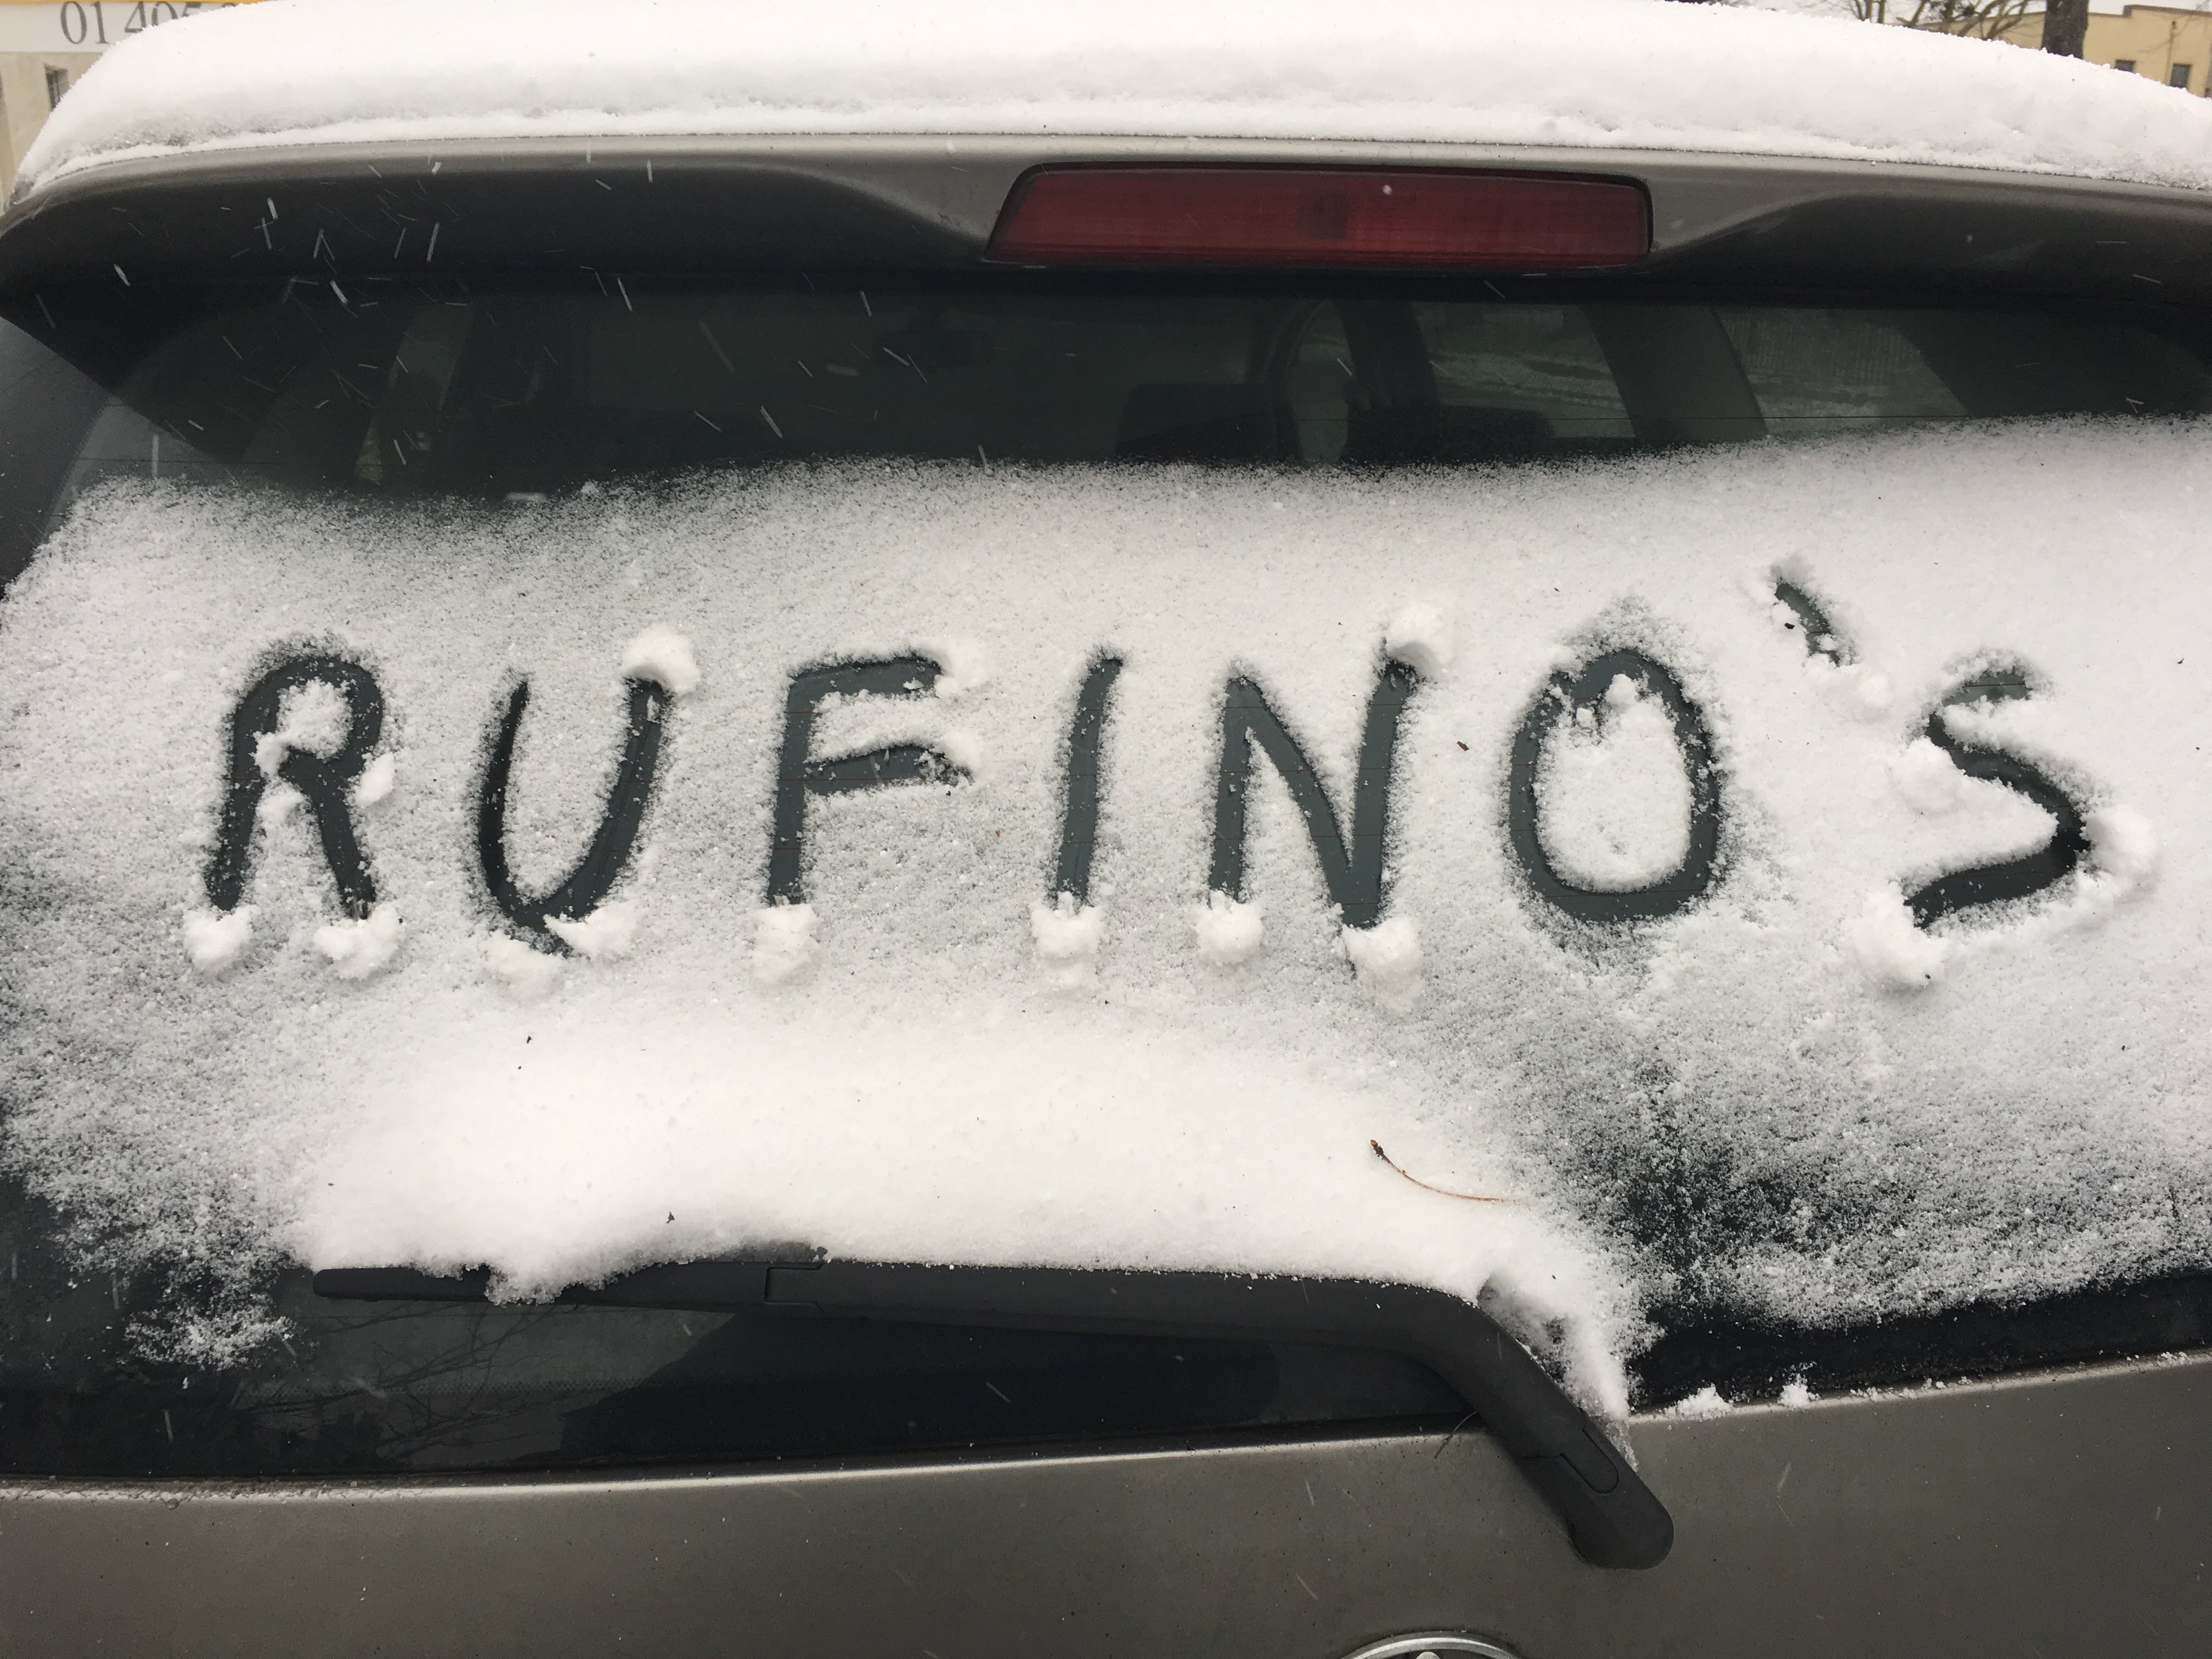 01 405
RUFINO'S